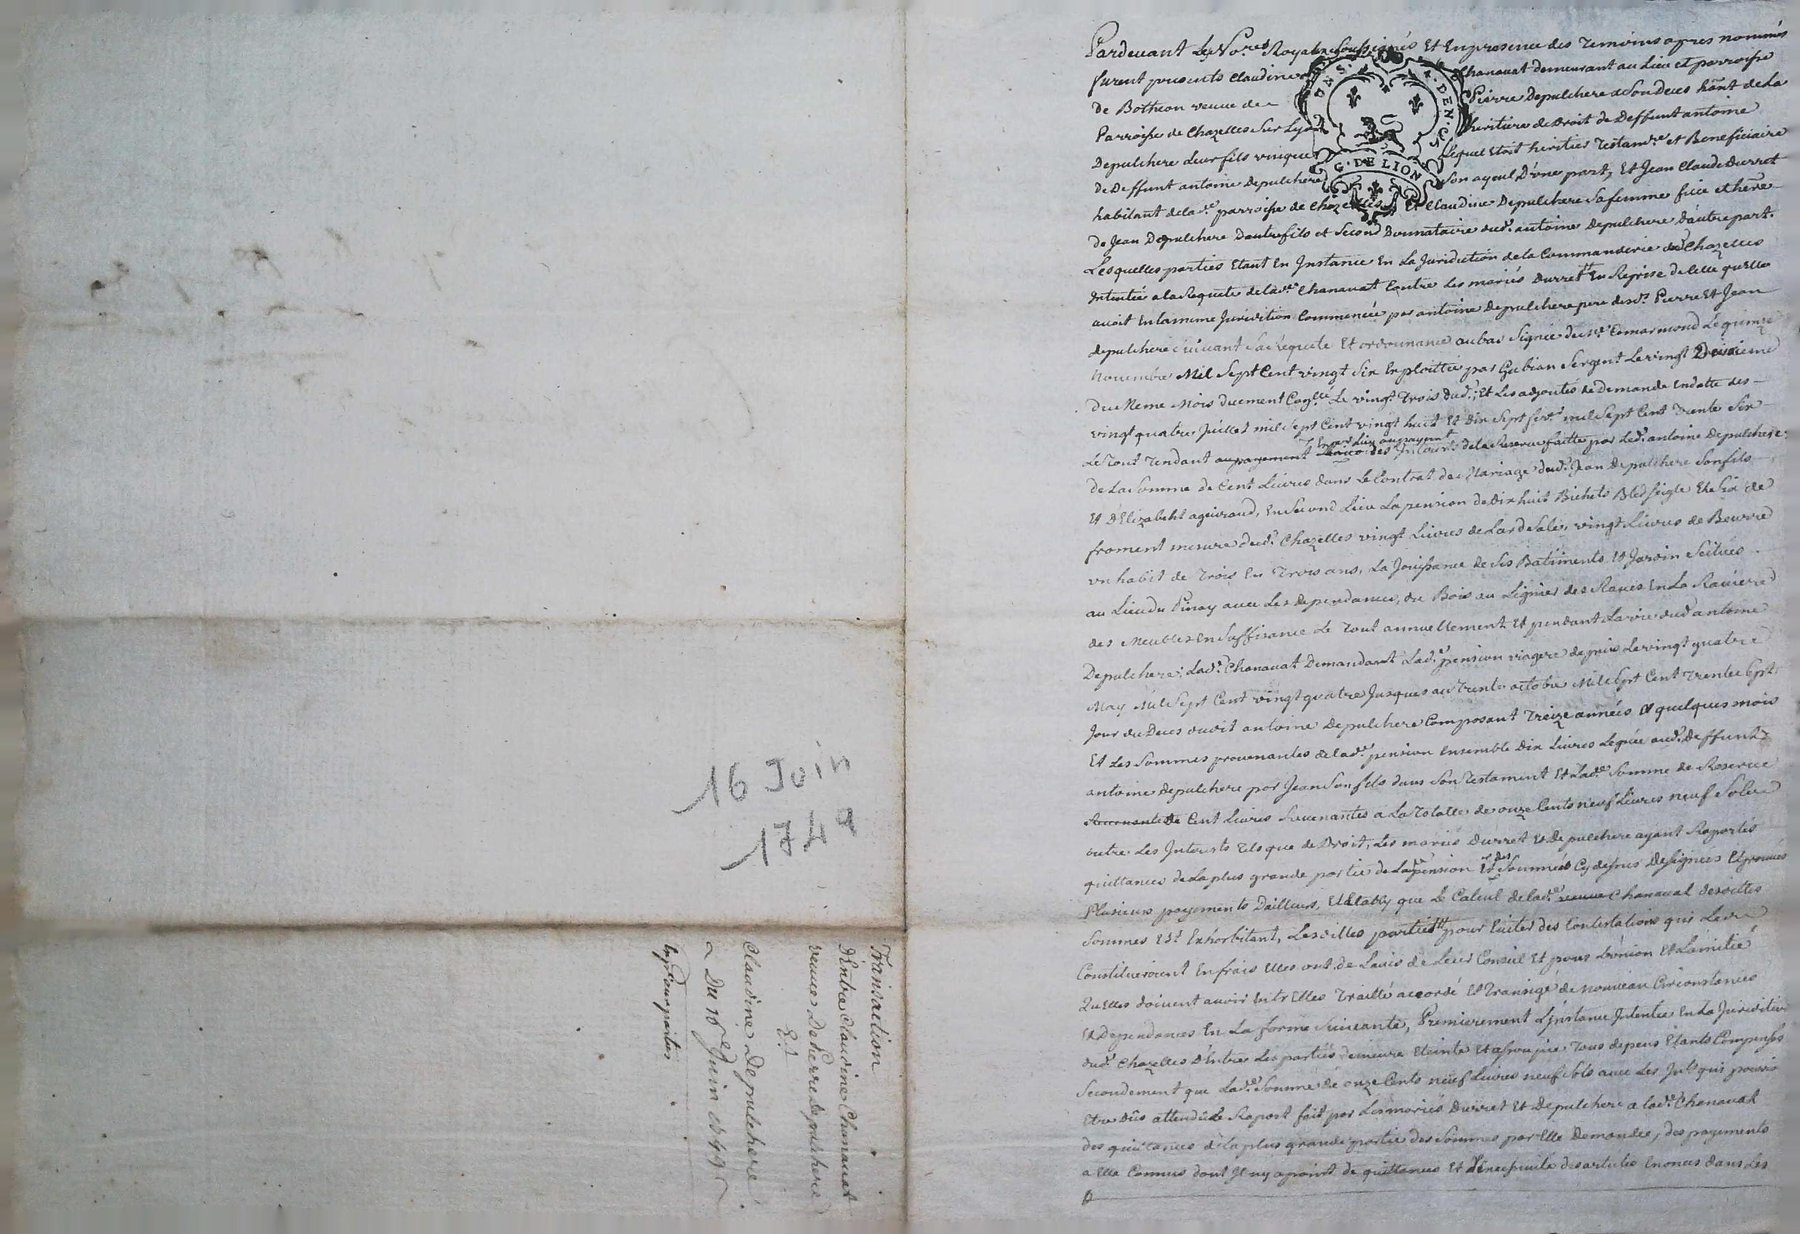 16 Juin
1749
Transaction
D'Entre Claudine Chanauat
veuve De Pierre Depulchere
Et
Claudine Depulchere
Du 16e Juin 1749
Pardevant Les No.res Royaux Soussignés Et En presence des Temoins apres nommés
furent presents Claudine Chanauat demeurant au Lieu et parroisse
de Botheon veuve de Pierre Depulchere a Son Deces hant de La
Parroisse de Chazelles Sur Lyon heritiere de Droit de Deffunt antoine
Depulchere Leur fils unique Lequel Etoit heritier Testam.re et Beneficiaire
de Deffunt antoine Depulchere Son ayeul D'une part, Et Jean Claude Durret
habitant de lad.e parroisse de Chazelles Et Claudine Depulchere Sa femme fille et here
de Jean Depulchere D'autre fils et Second Donnataire dud. antoine Depulchere D'autre part.
Lesquelles parties Etant En Instance En La Juridiction de la Commanderie de Chazelles
Intentée a la Requete de lad.e Chanauat Contre Les mariés Durret En Reprise de Celle quElle
auoit En la meme Juridition Commencée par antoine Depulchere pere desd.s Pierre Et Jean
depulchere Suiuant Sa Requete Et ordonnance au bas Signée du Comarmond Le quinze
Nouembre Mil Sept Cent vingt Six Exploittée par Gubian Sergent Le vingt
du Meme Mois duement Le vingt Trois dud., Et Les adjoutés de Demande En datte des
vingt quatre Juillet mil Sept Cent vingt huit Et dix Sept mil Sept Cent Trente Six
Le Tout Tendant En per Lieu au payement des de la Reserue faitte par Led. antoine Depulchere
de La Somme de Cent Livres dans Le Contrat de Mariage dud. Jean Depulchere Son fils
Et D'Elizabeht aguiraud, En Second Lieu La pension de Dix huit Bichets Bled Seigle Et Six de
froment mesure dud. Chazelles vingt Livres de Lard Salé, vingt Livres de Beurre
un habit de Trois En Trois ans, La Jouissance de Ses Batiments Et Jardin Scitués
au Lieu du Pinay auec Les dependances, du Bois au Lignier des Raues En La Rauiere
des Meubles En Suffisance Le Tout annuellement Et pendant La vie dud. antoine
Depulchere, Lad. Chanauat Demandant Lad.e pension viagere depuis Le vingt quatre
May Mil Sept Cent vingt quatre Jusques au Trente octobre Mil Sept Cent Trente Sept
Jour du Deces dudit antoine Depulchere Composant Treize années Et quelques mois
Et Les Sommes prouenantes de lad.e pension Ensemble Dix Livres Leguée aud. Deffunt
antoine Depulchere par Jean Son fils dans Son Testament Et lad.e Somme de Reserue
de Cent Livres Reuenantes a La Totalle de onze Cents neuf Livres neuf Sols
outre Les Interests Tels que de Droit, Les mariés Durret Et Depulchere ayant Raportés
quittances de La plus grande partie de La pension Et des Sommes Cy dessus Designées Et prouués
Plusieurs payements Dailleurs, Et Etably que Le Calcul de lad.e Chanauat desdittes
Sommes Est Exhorbitant, Lesdittes parties pour Euiter des Contestations qui Les
Constitueroient En frais Elles ont de L'auis de Leur Conseil Et pour L'union Et L'amitié
Quelles doiuent auoir Entre Elles Traitté accordé Et Transigé de nouueau Circonstances
Et Dependances En La forme Suiuante, Premierement L'Instance Intentée En La Juridition
dud. Chazelles D'Entre Les parties demeure Eteinte Et assoupie Tous depens Etants Compensés
Secondement que Lad.e Somme de onze Cents neuf Livres neuf Sols auec Les Ints qui pouuoient
Etre Dûs attendu Le Raport fait par Les mariés Durret Et Depulchere a lad.e Chanauat
des quittances de la plus grande partie des Sommes par Elle Demandée, des payements
a Elle Connus dont Il n'y a point de quittances Et des articles Enonces dans Les
G. DE LION